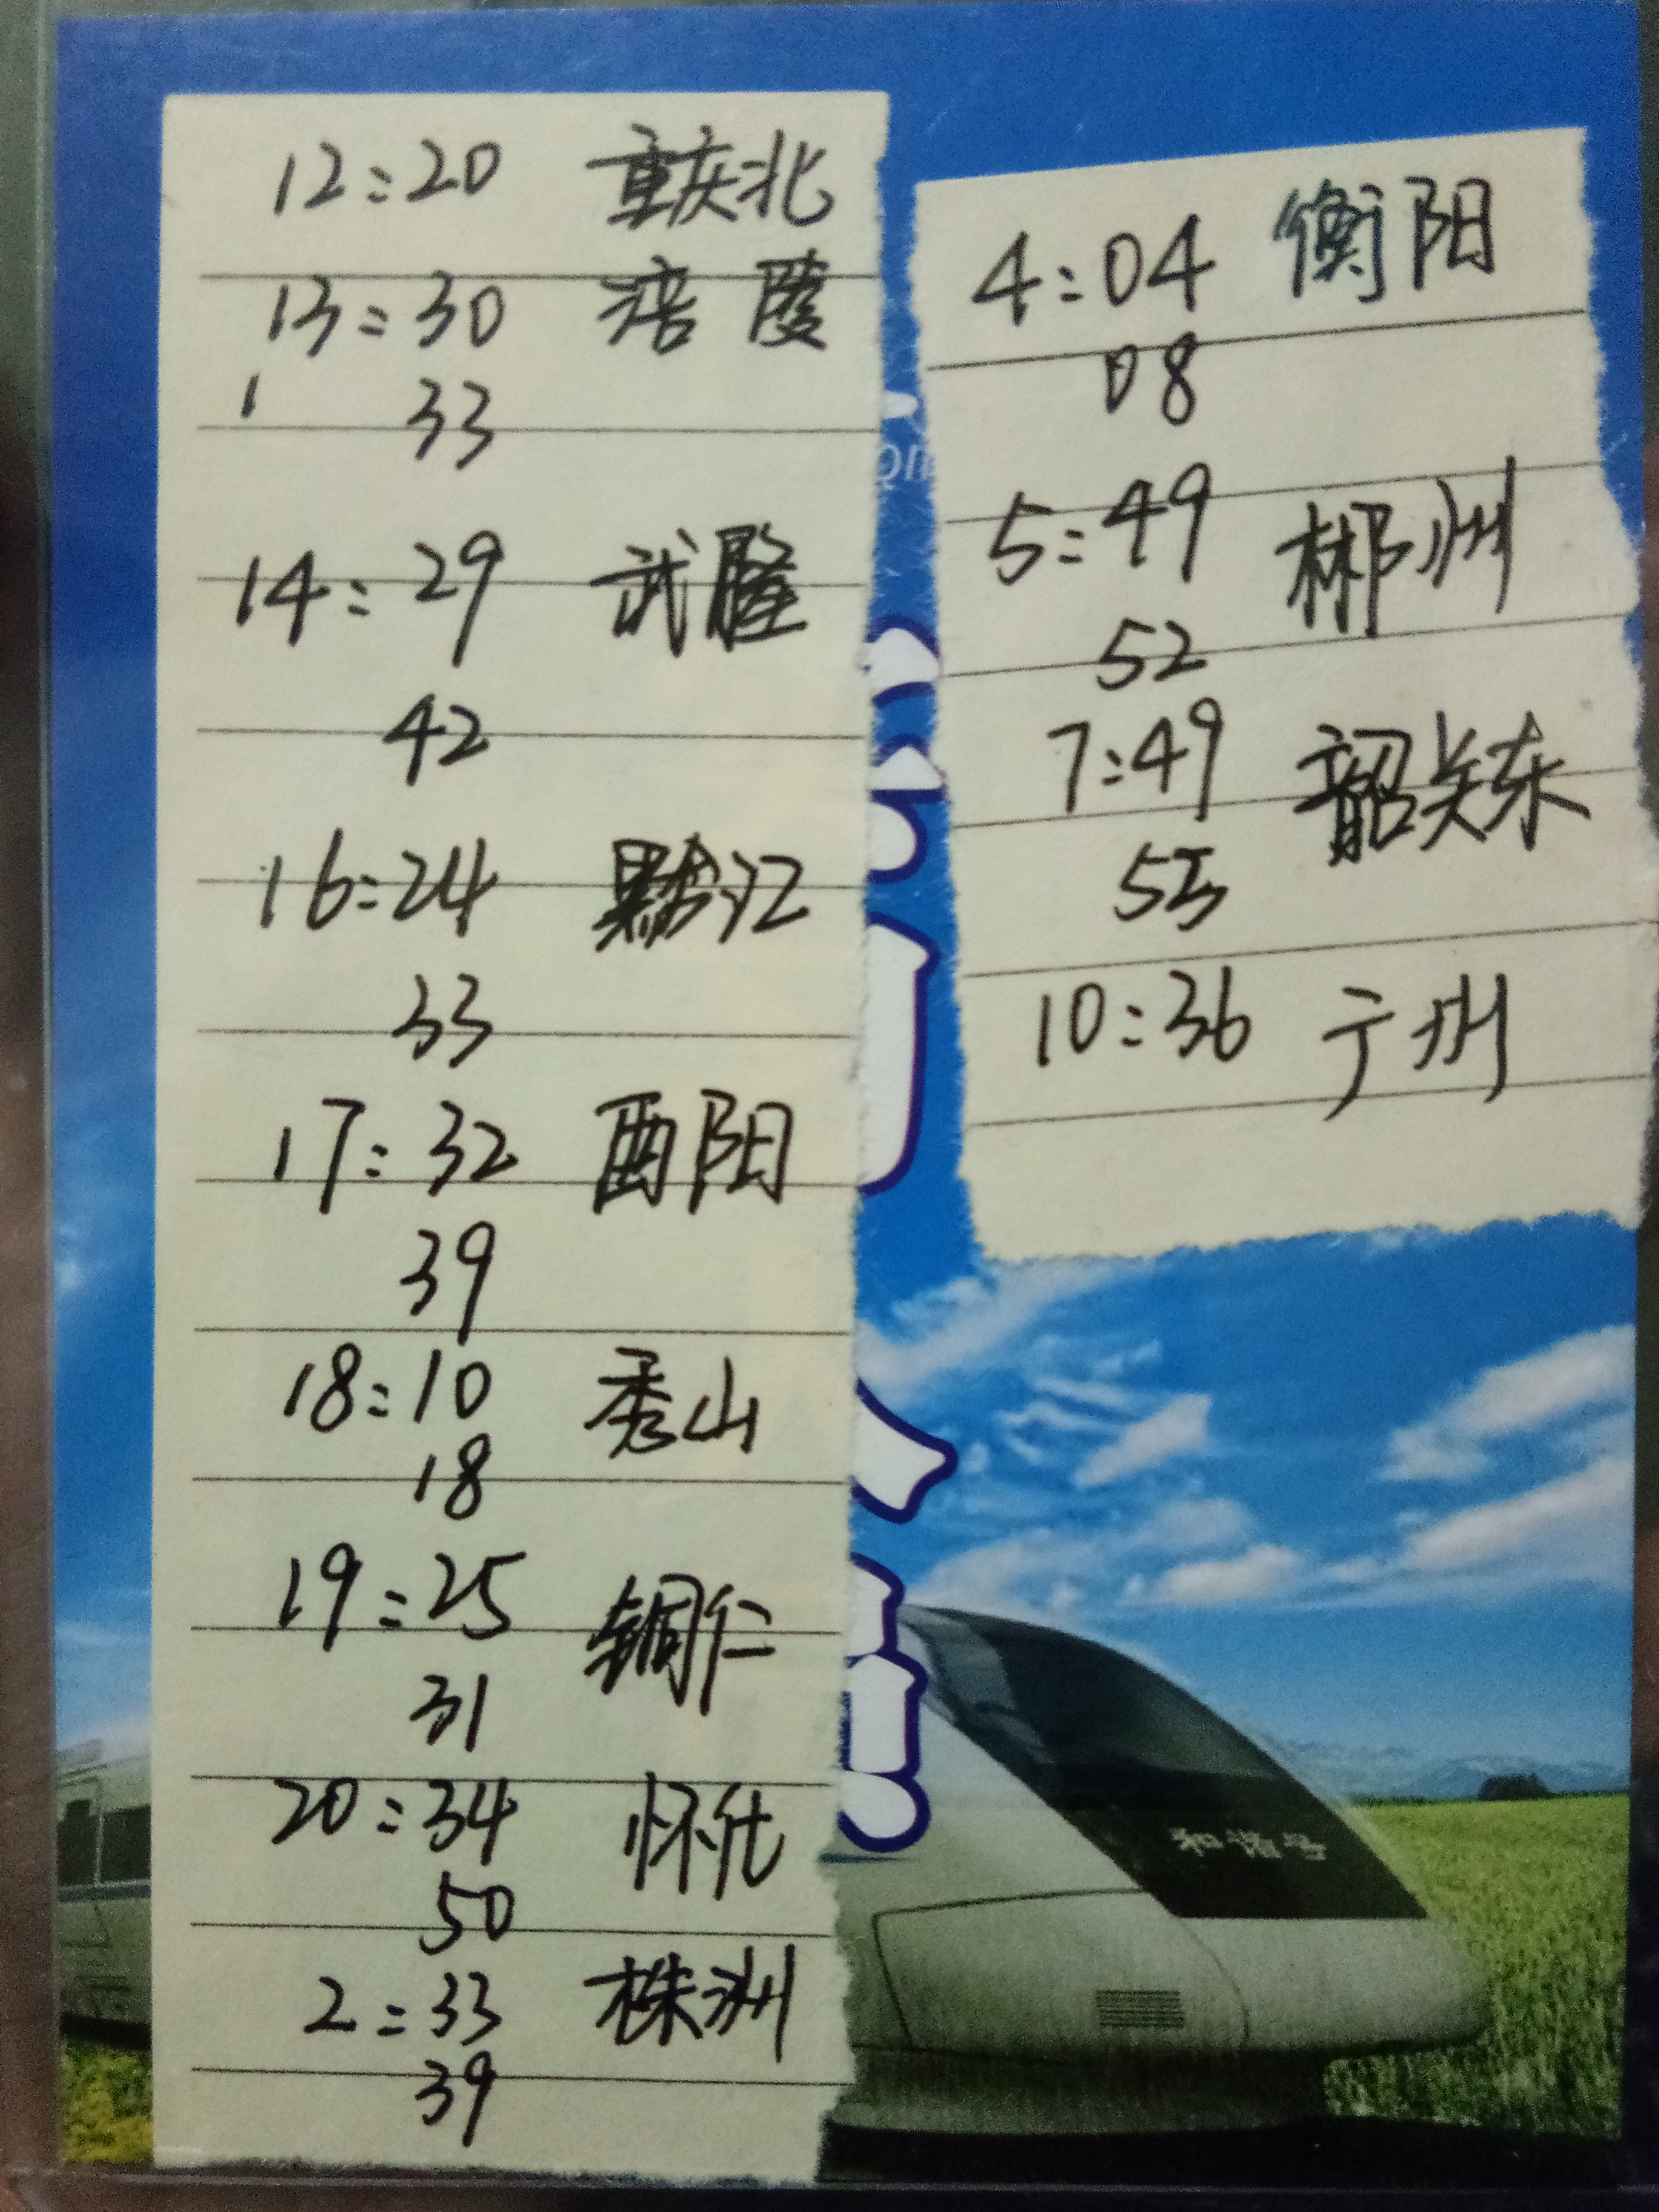 12:20 重庆北
13:30 涪陵
33
14:29 武隆
42
16:24 黔江
33
17:32 酉阳
39
18:10 秀山
18
19:25 铜仁
31
20:34 怀化
50
2:33 株洲
39
4:04 衡阳
08
5:49 郴州
52
7:49 韶关东
55
10:36 广州
和谐号